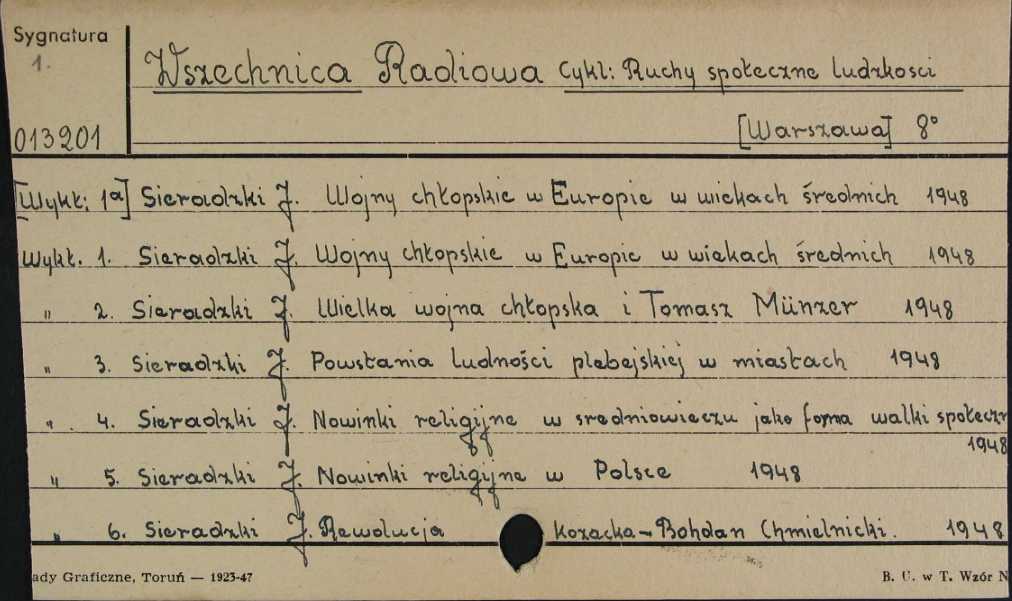 Sygnatura
1.
Wszechnica Radiowa Cykl: Ruchy społeczne ludzkosci
013201
[Warszawa] 8°
[Wykł: 1a] Sieradzki J. Wojny chłopskie w Europie w wiekach średnich 1948
Wykł. 1. Sieradzki J. Wojny chłopskie w Europie w wiekach średnich 1948
" 2. Sieradzki J. Wielka wojna chłopska i Tomasz Münzer 1948
" 3. Sieradzki J. Powstania ludności plebejskiej w miastach 1948
" 4. Sieradzki J. Nowinki religijne w sredniowieczu jako forma walki społeczn
1948
" 5. Sieradzki J. Nowinki religijne w Polsce 1948
" 6. Sieradzki J. Rewolucja Kozacka - Bohdan Chmielnicki. 1948
ady Graficzne, Toruń — 1923-47 B. U. w T. Wzór N